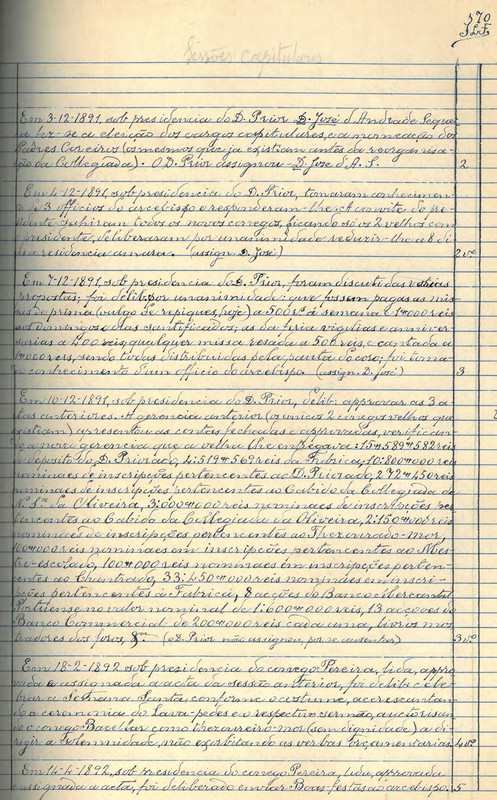 370
J.L.F.
Sessões capitulares
Em 3-12-1891, sob presidencia do D. Prior D. José d'Andrade Sequei-
ra fez-se a eleição dos cargos capitulares, e a nomeação dos
Padres Coreiros (os mesmos que já existiam antes da reorganisa-
ção da Collegiada). O D. Prior assignou - D. José d'A. S. 2
Em 4-12-1891, sob presidencia do D. Prior, tomaram conhecimen-
to de 3 officios do arcebispo e responderam-lhe; A convite do pre-
sidente sahiram todos os novos conegos, ficando só os 2 velhos com
o presidente, deliberaram por unanimidade reduzir-lhe a 8 di-
as a residencia amara. (assign. D. José) 2 vº
Em 7-12-1891, sob presidencia do D. Prior, foram discutidas várias
propostas; foi delib. por unanimidade: que fossem pagas as mis-
sas de prima (vulgo de repiques, hoje) a 500 rs á semana e 1#000 reis
aos domingos e dias santificados; as da feria vigilias e anniver-
sarias a 400 reis, qualquer missa resada a 500 reis, e cantada a
1#000 reis, sendo todas distribuidas pela pauta do coro; foi toma-
do conhecimento d'um officio do arcebispo. (assign. D. José) 3
Em 10-12-1891, sob presidencia do D. Prior, delib: approvar as 3 a-
ctas anteriores. A gerencia anterior (os unicos 2 conegos velhos que
existiam) apresentou as contas fechadas e approvadas, verifican-
do a nova gerencia que a velha lhe entregava: 15#589#582 reis
de deposito do D. Priorado, 4:519#569 reis da Fabrica; 10:800#000 reis
nominaes de inscripções pertencentes ao D. Priorado, 272#450 reis
nominaes de inscripções pertencentes ao Cabido da Collegiada de
N.ª S.ª da Oliveira, 3:000#000 reis nominaes de inscripções per-
tencentes ao Cabido da Collegiada da Oliveira, 2:150#000 reis
nominaes de inscripções pertencentes ao Thezourado-Mor,
100#000 reis nominaes em inscripções pertencentes ao Mes-
tre-escolado, 100#000 reis nominaes em inscripções perten-
centes ao Chantrado, 33:450#000 reis nominaes em inscri-
pções pertencentes á Fabrica, 8 acções do Banco Mercantil
Portuense no valor nominal de 1:600#000 reis, 13 acçoes do
Banco Commercial de 200#000 reis cada uma, livros mos-
tradores dos foros, &ª (o D. Prior não assignou, por se ausentar) 3 vº
Em 18-2-1892 sob presidencia do conego Pereira, lida, appro-
vada e assignada a acta da sessão anterior, foi delib: cele-
brar a Semana Santa, conforme o costume, accrescentan-
do a ceremonia do Lava-pedes e o respectivo sermão, auctorisan-
do o conego Bacellar como thezoureiro-mor (sem dignidade) a di-
rigir a solemnidade, não exorbitando as verbas orçamentarias. 4 vº
Em 14-4-1892, sob presidencia do conego Pereira, lida, approvada
e assignada a acta, foi deliberado enviar Boas-festas ao arcebispo. 5